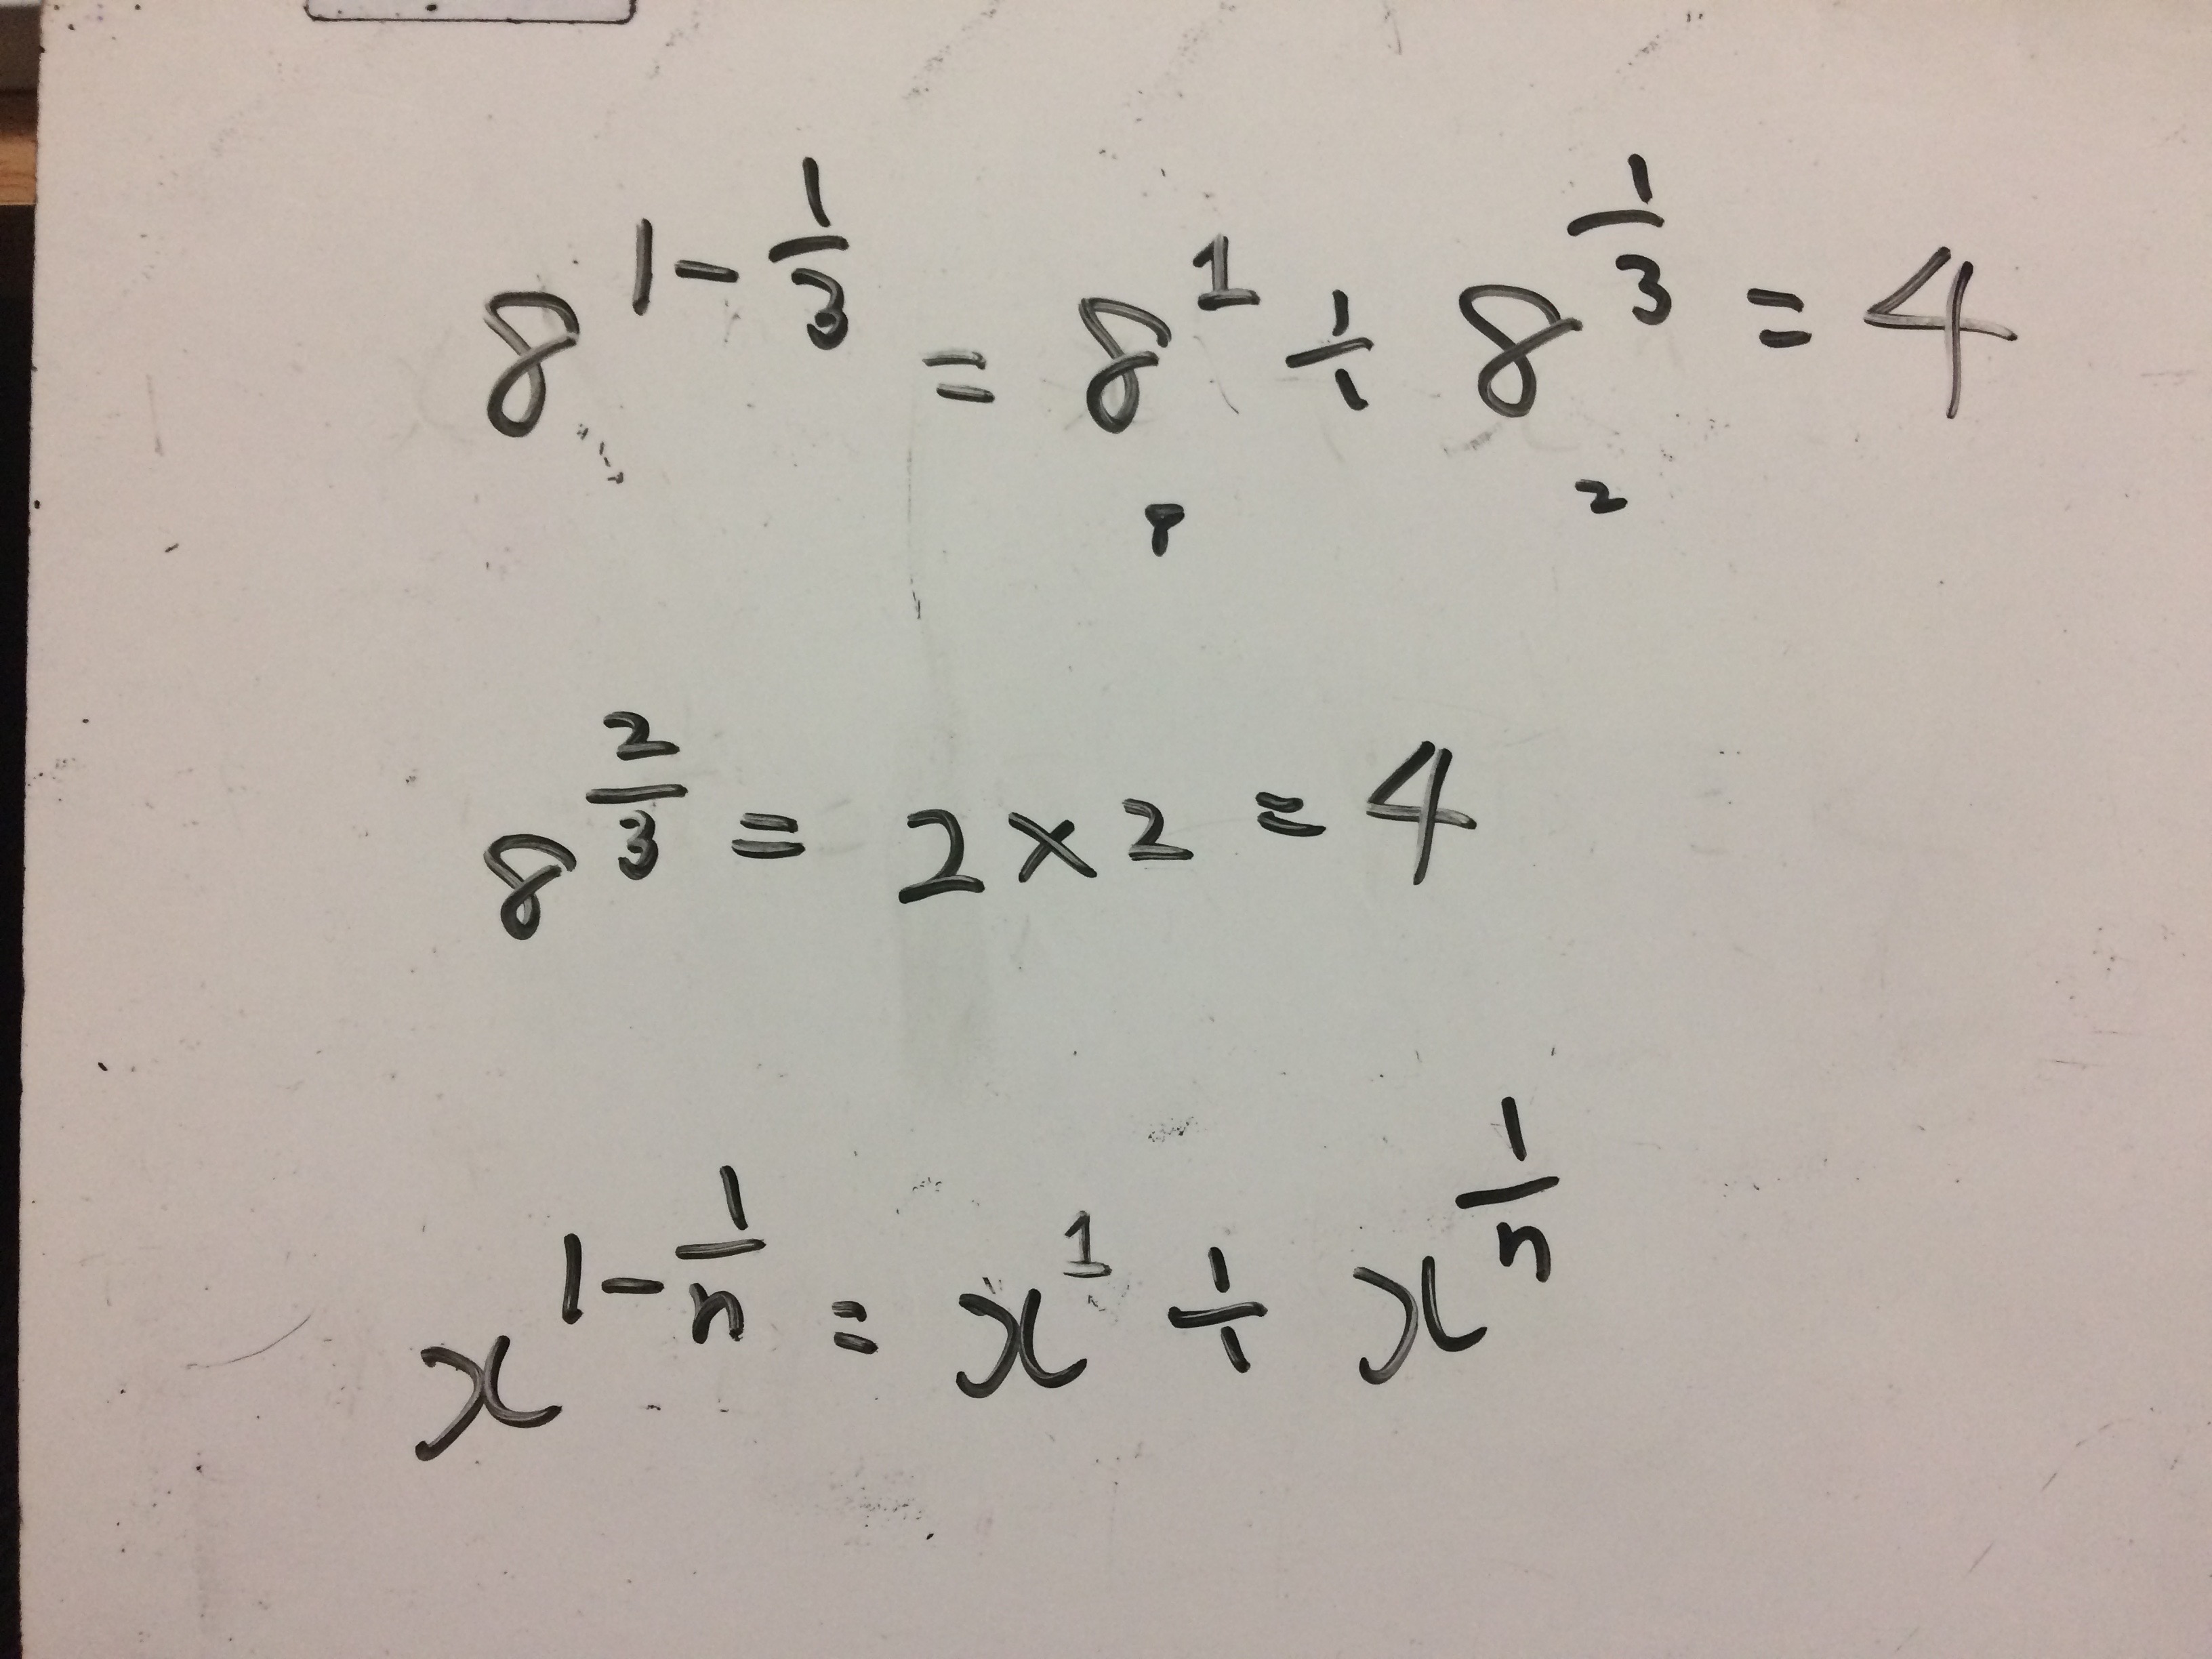 8^{1-\frac{1}{3}} = 8^1 ÷ 8^{\frac{1}{3}} = 4
8 2
8^{\frac{2}{3}} = 2 × 2 = 4
x^{1-\frac{1}{n}} = x^1 ÷ x^{\frac{1}{n}}